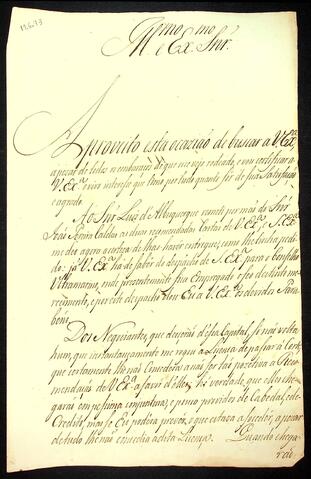 11.6.73
Illmo. mo
e Ex. Snr.
Aproveito esta ocazião de buscar a V. Exª
apezar de todos os embaraços de que me vejo rodeado, e em certificar a
V. Exª o vivo interesse que tomo por tudo quanto for de sua satisfação
e agrado.
Ao Snr. Luis d'Albuquerque remeti por mão do Snr.
João Pereira Caldas as duas recomendadas Cartas de V. Exª, e S. Exª
me deu agora a certeza de lhas haver entregue, como lhe tinha pedi-
do: já V. Exª ha de saber do despacho de S. Exª para o Conselho
Ultramarino, mas prezentemente sem empregado e feo destituido me-
recimento, e por este despacho dou Eu a V. Exª os devidos Para-
béns.
Dos Negociantes, que dessa Capital, só não volta
hum, que instantaneamente me requer a Licença de passar á Corte,
que certamente lhe não Concedera a não ser tão precetiva a Reco-
mendação de V. Exª a favor d'elle. He verdade que elles che-
garão em pessima conjuntura, e pouco providos de Cabedal, e de
Credito, mas se Eu podéra prover, o que estava a suceder, a pezar
de tudo lhe não concedia a dita Licença. Quando chega-
rão